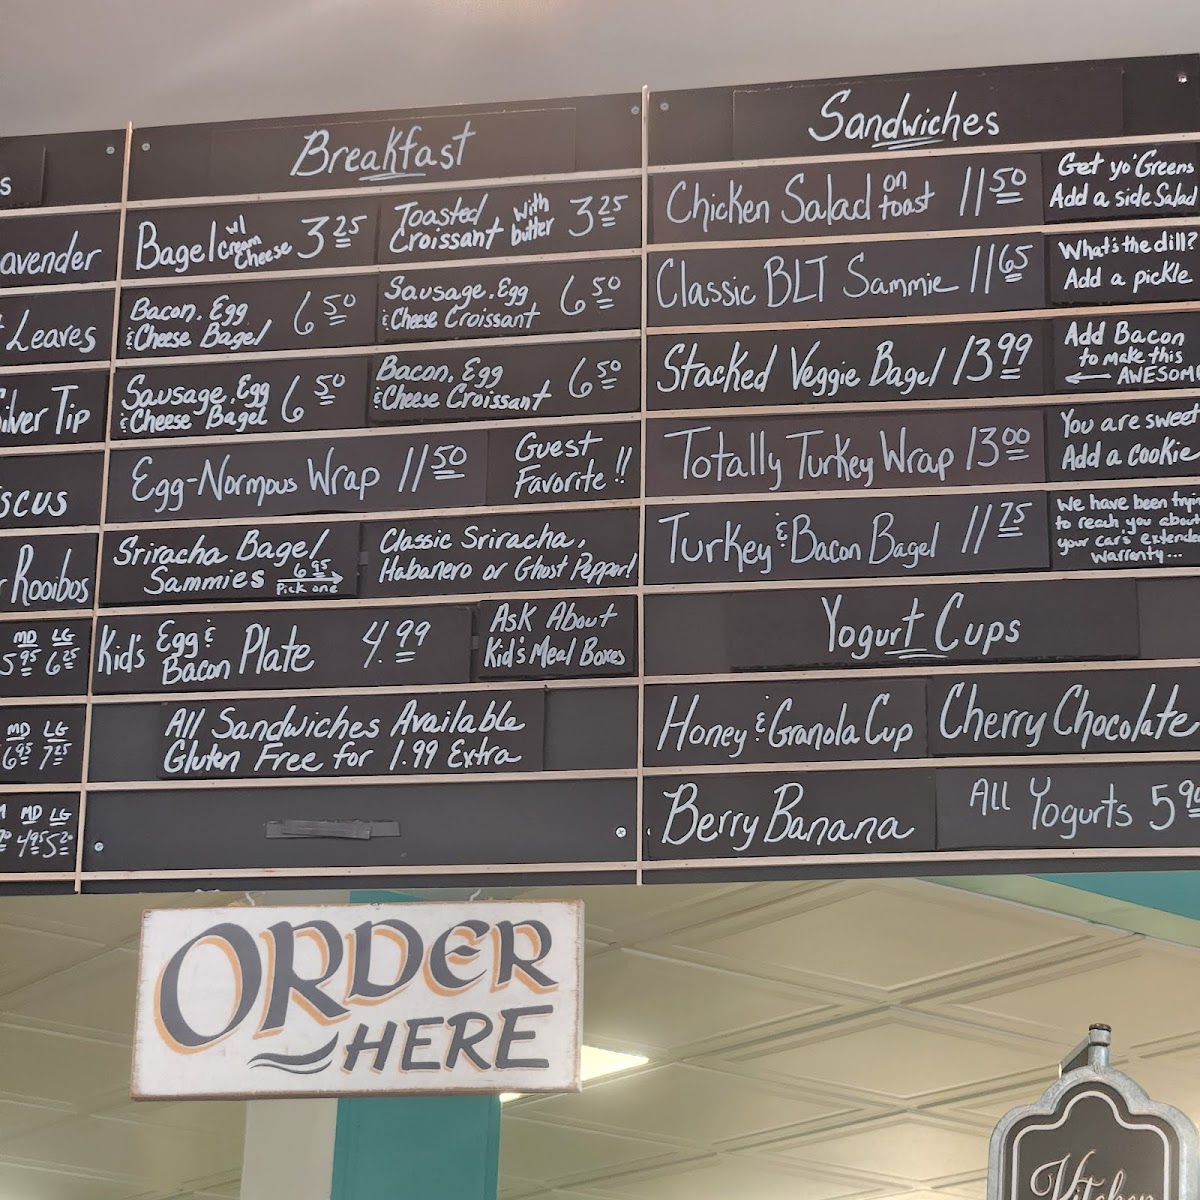 s
avender
Leaves
ilver Tip
iscus
Rooibos
MD LG
5.95 6.25
MD LG
6.95 7.25
MD LG
4.95 5.20
Breakfast
Bagel w/ Cream Cheese 3.25
Toasted Croissant with butter 3.25
Bacon, Egg
& Cheese Bagel 6.50
Sausage, Egg
& Cheese Croissant 6.50
Sausage, Egg
& Cheese Bagel 6.50
Bacon, Egg
& Cheese Croissant 6.50
Egg-Normous Wrap 11.50
Guest
Favorite!!
Sriracha Bagel
Sammies 6.95
Pick one
Classic Sriracha,
Habanero or Ghost Pepper!
Kid's Egg & Bacon Plate 4.99
Ask About
Kid's Meal Boxes
All Sandwiches Available
Gluten Free for 1.99 Extra
Sandwiches
Chicken Salad on toast 11.50
Get yo' Greens
Add a side Salad
Classic BLT Sammie 11.65
What's the dill?
Add a pickle
Stacked Veggie Bagel 13.99
Add Bacon
to make this
AWESOME
Totally Turkey Wrap 13.00
You are sweet
Add a cookie
Turkey & Bacon Bagel 11.75
We have been tryin
to reach you about
your car's extended
warranty...
Yogurt Cups
Honey & Granola Cup
Cherry Chocolate
Berry Banana
All Yogurts 5.9
ORDER
HERE
Kitchen